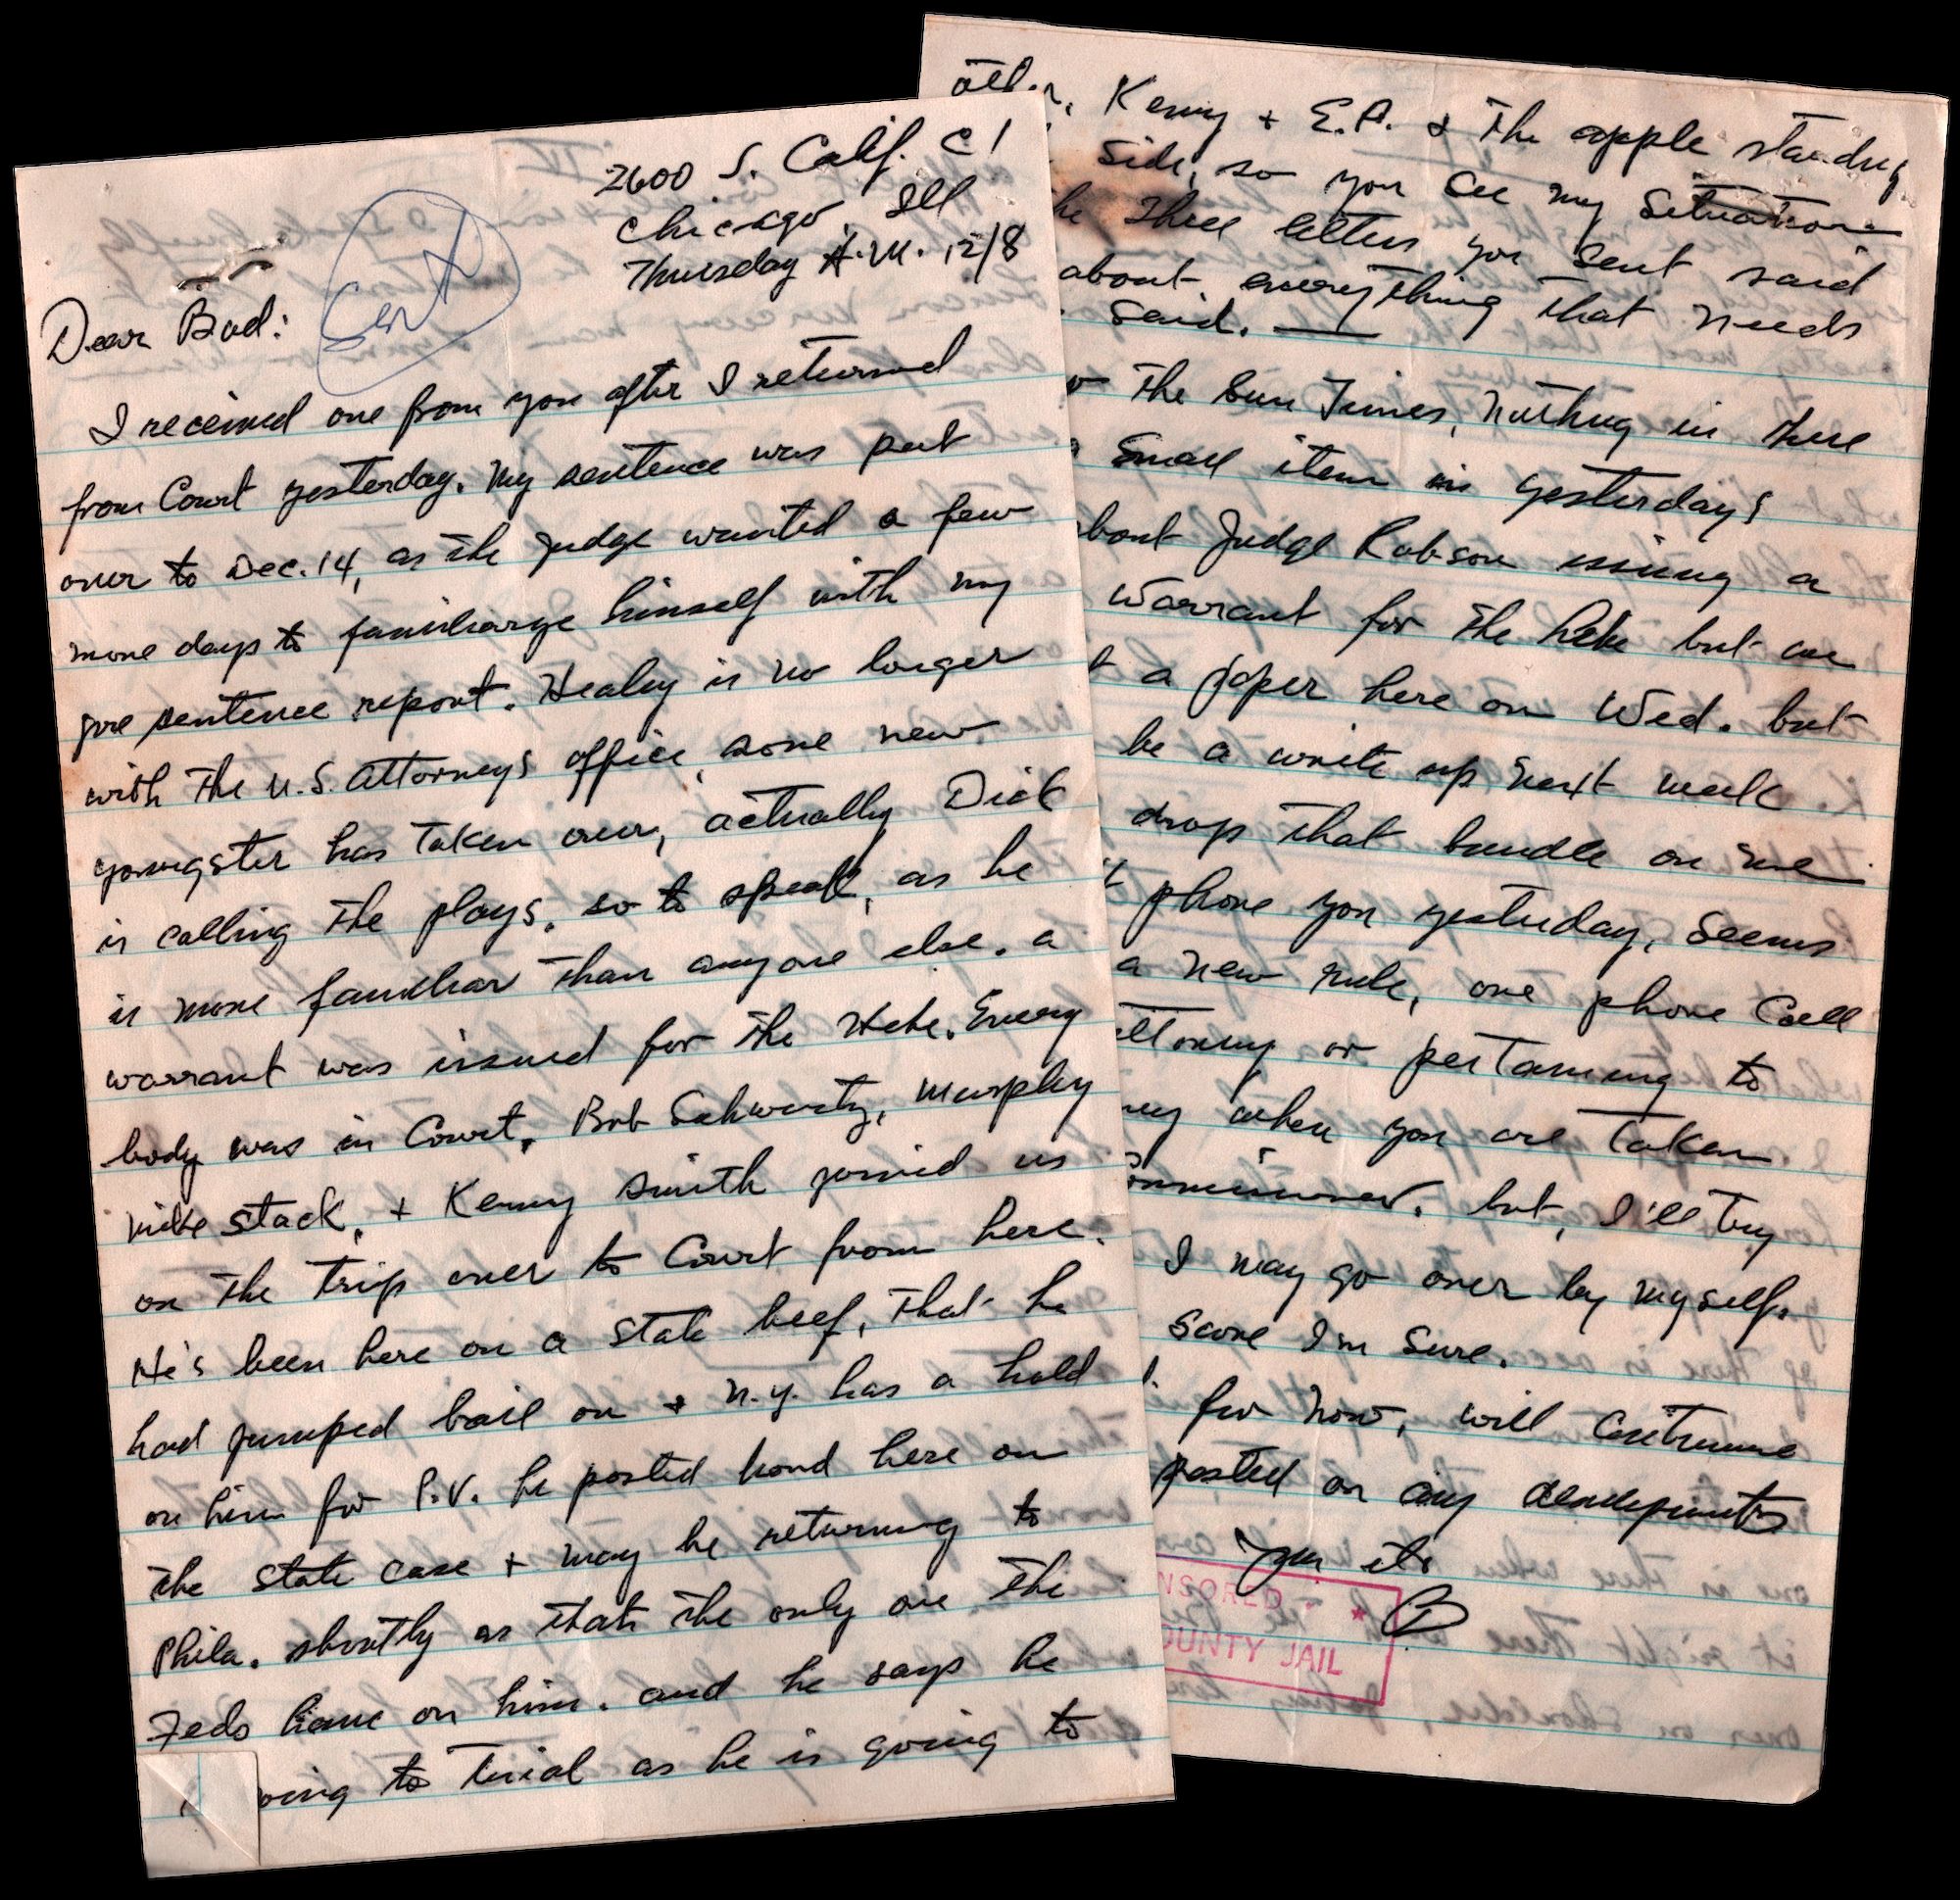 2600 S. Calif. C1
Chicago, Ill
Thursday A.M. 12/8
Dear Bud:
I received one from you after I returned
from Court yesterday. My sentence was put
over to Dec. 14, as the judge wanted a few
more days to familiarize himself with my
pre sentence report. Healey is no longer
with the U.S. Attorneys office, some new
youngster has taken over, actually Dick
is calling the plays, so to speak, as he
is more familiar than anyone else. a
warrant was issued for the Hebe. Every
body was in Court, Bob Schwartz, Murphy
Mike Stack, + Kenny Smith joined us
on the trip over to Court from here.
He's been here on a State beef, that he
had jumped bail on + N.Y. has a hold
on him for P.V. he posted bond here on
the State case + may be returning to
Phila. shortly as thats the only one the
Feds have on him. and he says he
going to Trial as he is going to
Kenny + E.A. + the apple standing
side, so you see my situation
Three letters you sent said
about everything that needs
said.
The Sun Times, nothing in there
small item in yesterdays
about Judge Robson issuing a
warrant for the Hebe but we
a paper here on Wed. but
be a write up next week
drop that bundle on me
phone you yesterday, seems
a new rule, one phone Call
or pertaining to
when you are taken
but, I'll try
I may go over by myself.
score I'm sure.
for now, will continue
posted on any developments
NSORED
OUNTY JAIL